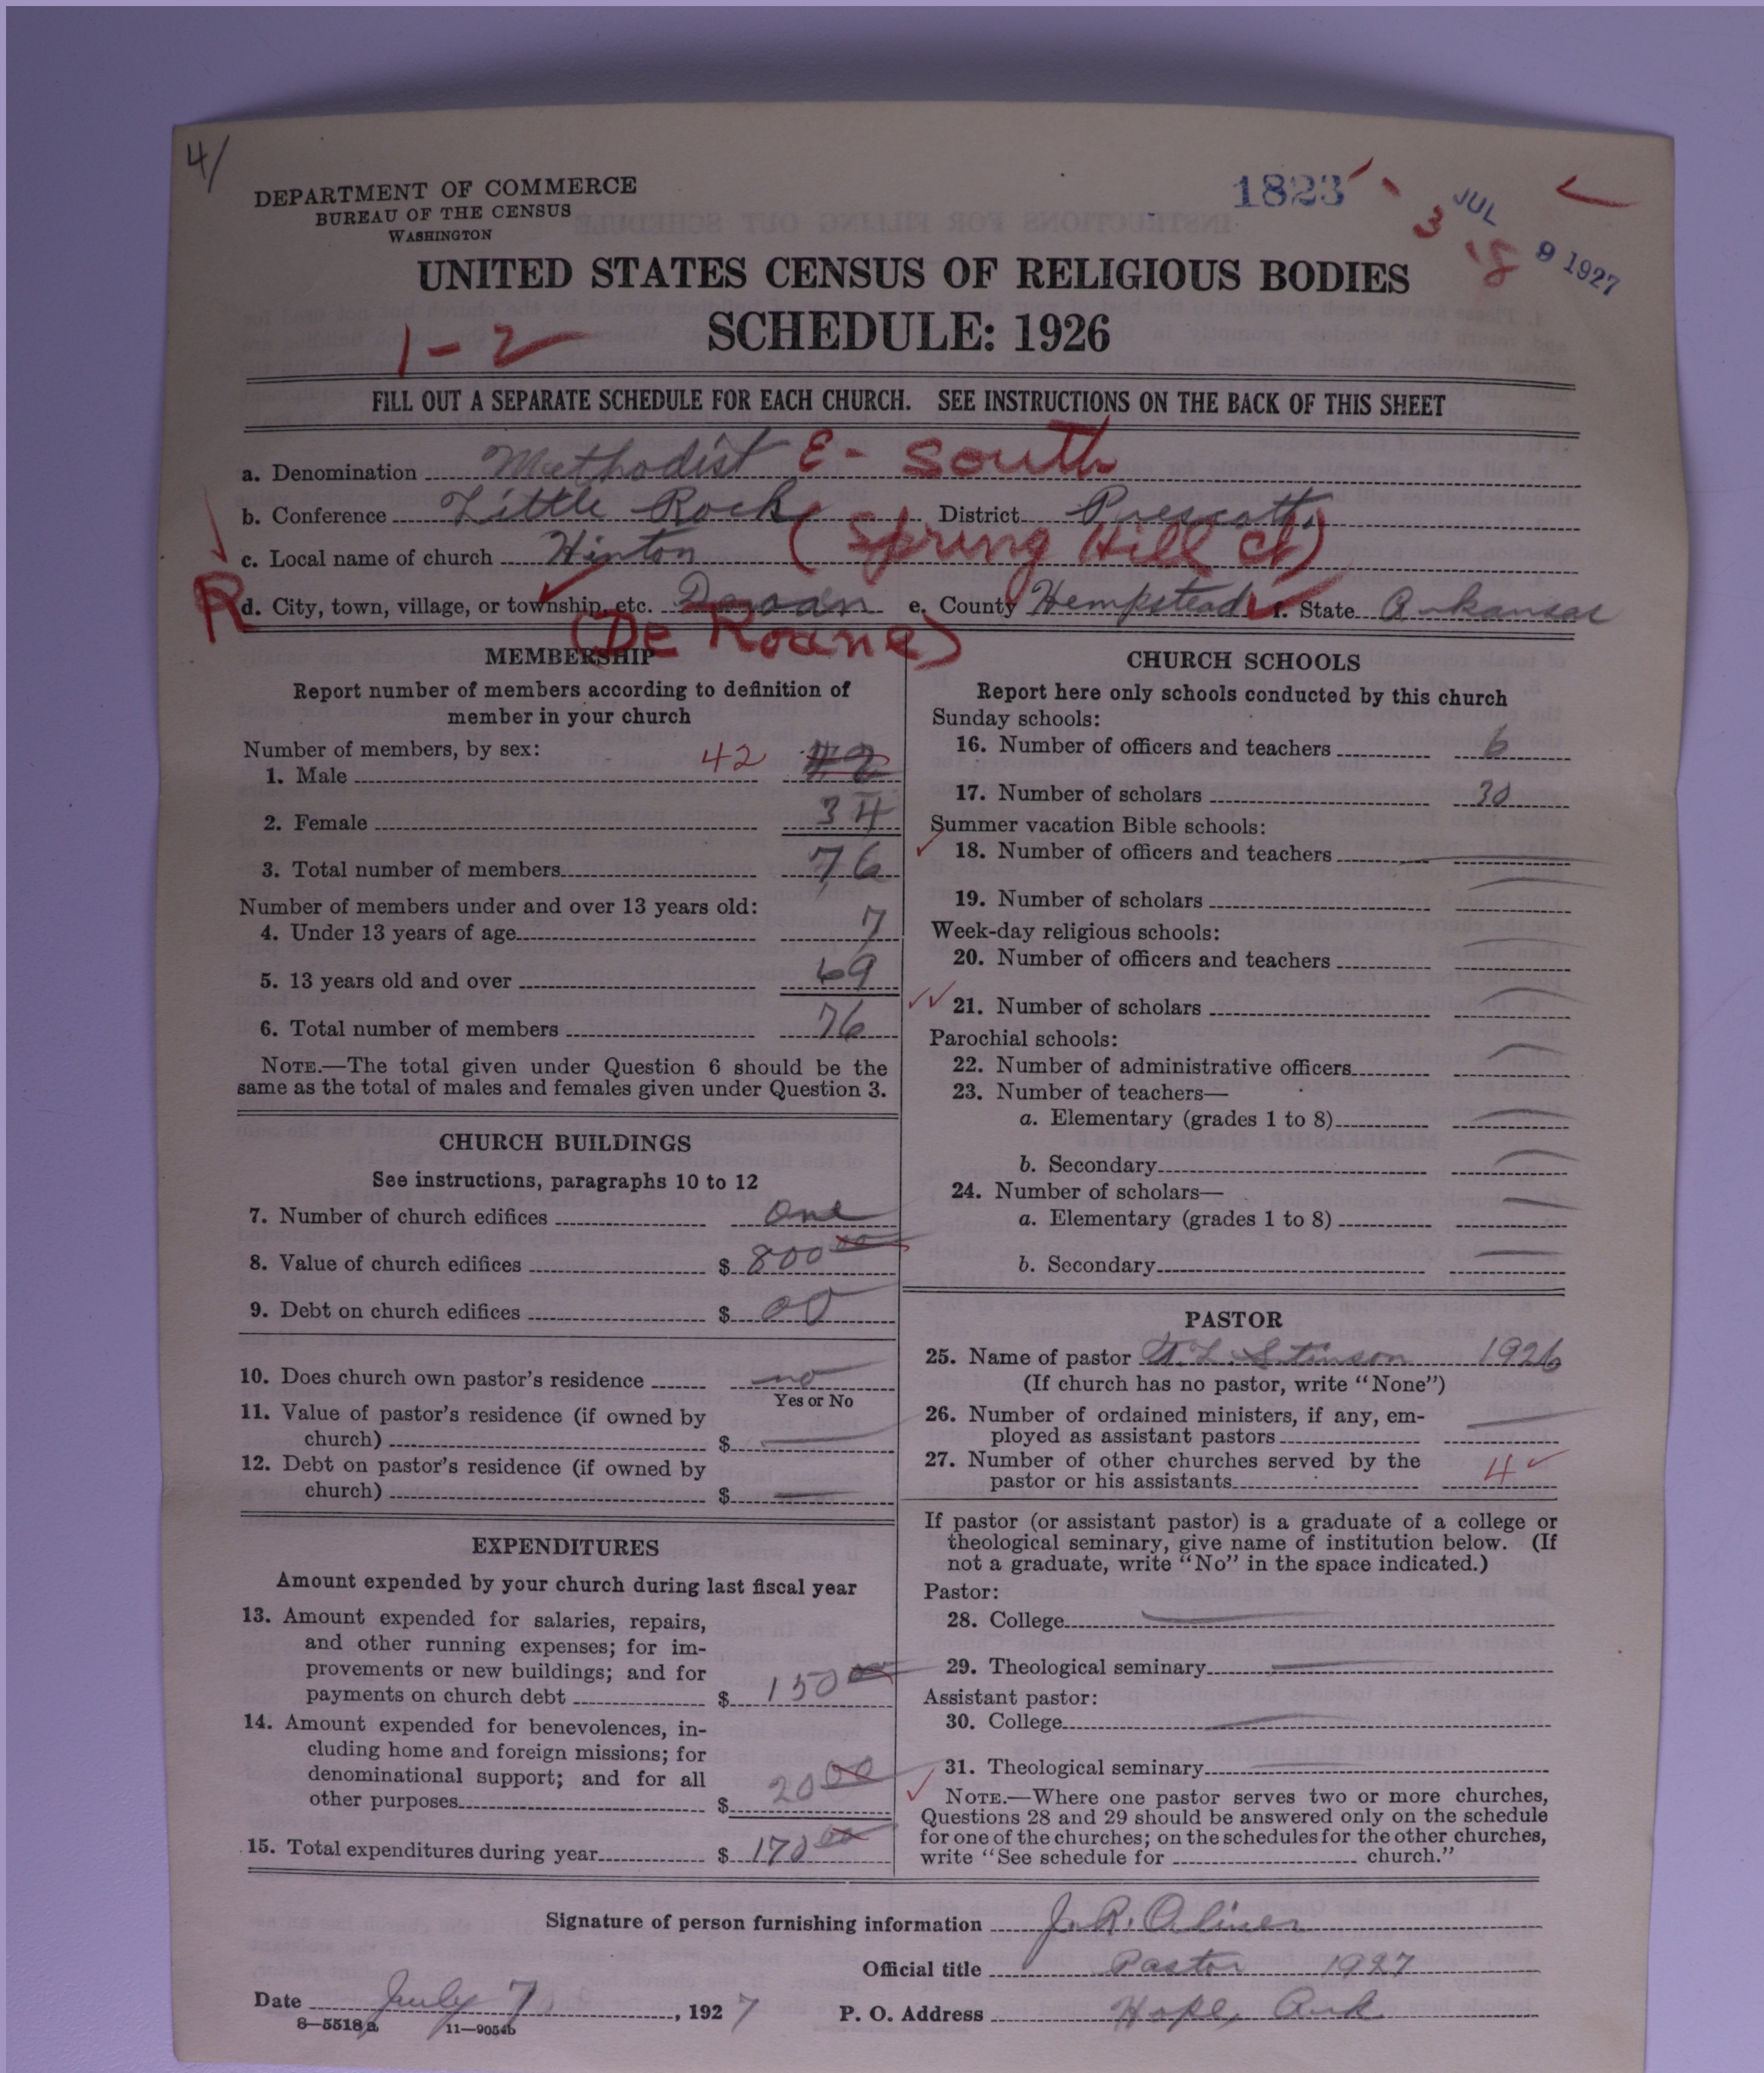 4/
DEPARTMENT OF COMMERCE
BUREAU OF THE CENSUS
WASHINGTON
1823
3
JUL 9 1927
8
UNITED STATES CENSUS OF RELIGIOUS BODIES
SCHEDULE: 1926
1-2
FILL OUT A SEPARATE SCHEDULE FOR EACH CHURCH. SEE INSTRUCTIONS ON THE BACK OF THIS SHEET
a. Denomination Methodist E- South
b. Conference Little Rock District Prescott.
c. Local name of church Hinton (Spring Hill Ct)
R
d. City, town, village, or township, etc. e. County Hempstead f. State Arkansas
(De Roane)
MEMBERSHIP
Report number of members according to definition of
member in your church
Number of members, by sex:
1. Male 42 42
2. Female 34
3. Total number of members 76
Number of members under and over 13 years old:
4. Under 13 years of age 7
5. 13 years old and over 69
6. Total number of members 76
NOTE.—The total given under Question 6 should be the
same as the total of males and females given under Question 3.
CHURCH BUILDINGS
See instructions, paragraphs 10 to 12
7. Number of church edifices one
8. Value of church edifices $ 800 00
9. Debt on church edifices $ 00
10. Does church own pastor's residence no
Yes or No
11. Value of pastor's residence (if owned by
church) $
12. Debt on pastor's residence (if owned by
church) $
EXPENDITURES
Amount expended by your church during last fiscal year
13. Amount expended for salaries, repairs,
and other running expenses; for im-
provements or new buildings; and for
payments on church debt $ 150 00
14. Amount expended for benevolences, in-
cluding home and foreign missions; for
denominational support; and for all
other purposes $ 20 00
15. Total expenditures during year $ 170 00
CHURCH SCHOOLS
Report here only schools conducted by this church
Sunday schools:
16. Number of officers and teachers 6
17. Number of scholars 30
Summer vacation Bible schools:
18. Number of officers and teachers
19. Number of scholars
Week-day religious schools:
20. Number of officers and teachers
21. Number of scholars
Parochial schools:
22. Number of administrative officers
23. Number of teachers—
a. Elementary (grades 1 to 8)
b. Secondary
24. Number of scholars—
a. Elementary (grades 1 to 8)
b. Secondary
PASTOR
25. Name of pastor Stinson 1926
(If church has no pastor, write "None")
26. Number of ordained ministers, if any, em-
ployed as assistant pastors
27. Number of other churches served by the
pastor or his assistants 4
If pastor (or assistant pastor) is a graduate of a college or
theological seminary, give name of institution below. (If
not a graduate, write "No" in the space indicated.)
Pastor:
28. College
29. Theological seminary
Assistant pastor:
30. College
31. Theological seminary
NOTE.—Where one pastor serves two or more churches,
Questions 28 and 29 should be answered only on the schedule
for one of the churches; on the schedules for the other churches,
write "See schedule for church."
Signature of person furnishing information J. R. Oliver
Official title Pastor 1927
Date July 7, 1927 P. O. Address Hope, Ark.
8—5518a 11—9054b